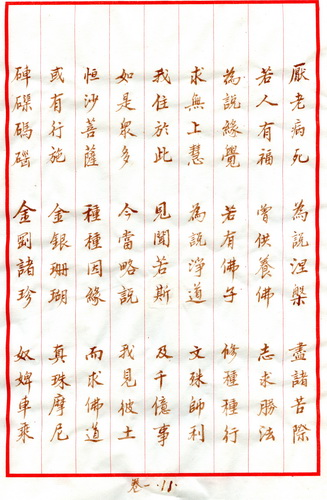 厭老病死 為說涅槃 盡諸苦際
若人有福 曾供養佛 志求勝法
為說緣覺 若有佛子 修種種行
求無上慧 為說淨道 文殊師利
我住於此 見聞若斯 及千億事
如是眾多 今當略說 我見彼土
恒沙菩薩 種種因緣 而求佛道
或有行施 金銀珊瑚 真珠摩尼
硨磲碼碯 金剛諸珍 奴婢車乘
卷一.11.